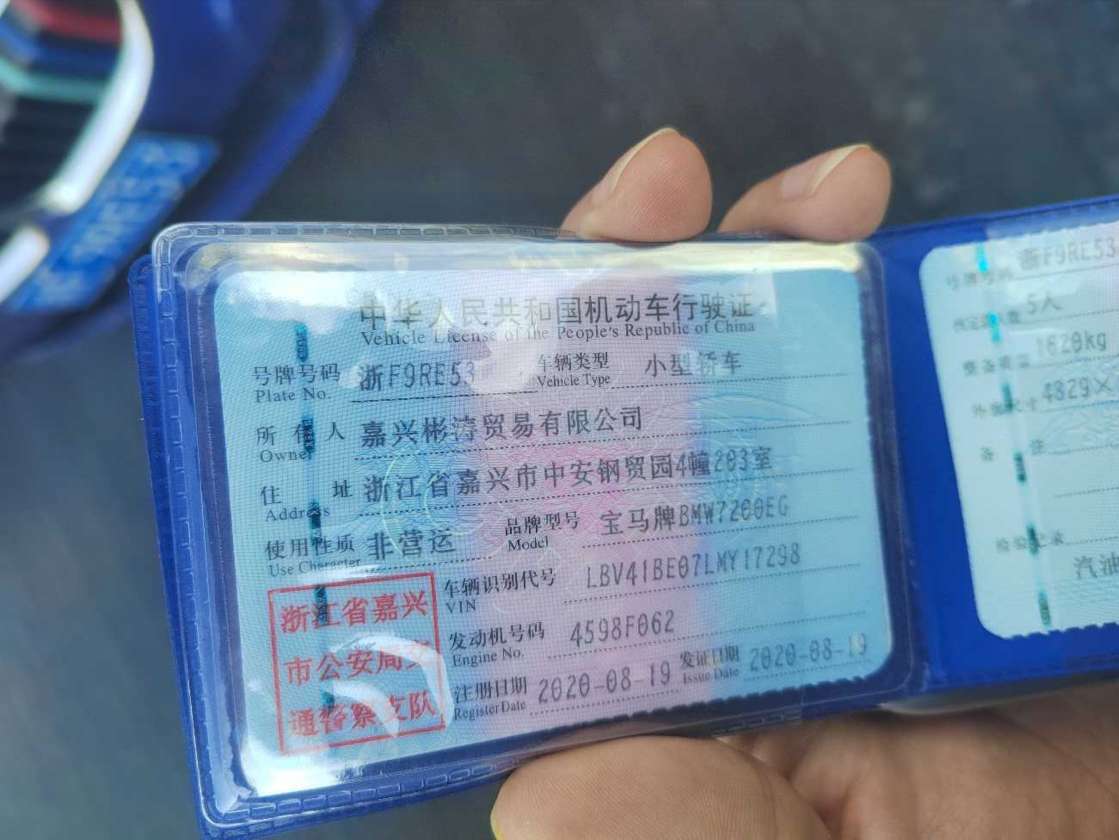 中华人民共和国机动车行驶证
Vehicle License of the People's Republic of China
号牌号码 浙F9RE53 车辆类型 小型轿车
Plate No. Vehicle Type
所有人 嘉兴彬湾贸易有限公司
Owner
住址 浙江省嘉兴市中安钢贸园4幢203室
Address
使用性质 非营运 品牌型号 宝马牌BMW7200EG
Use Character Model
车辆识别代号 LBV41BE07LMY17298
VIN
发动机号码 4598F062
Engine No.
注册日期 2020-08-19 发证日期 2020-08-19
Register Date Issue Date
浙江省嘉兴
市公安局交
通警察支队
号牌号码 浙F9RE53
5人
1620kg
4829×
备注
检验记录
汽油